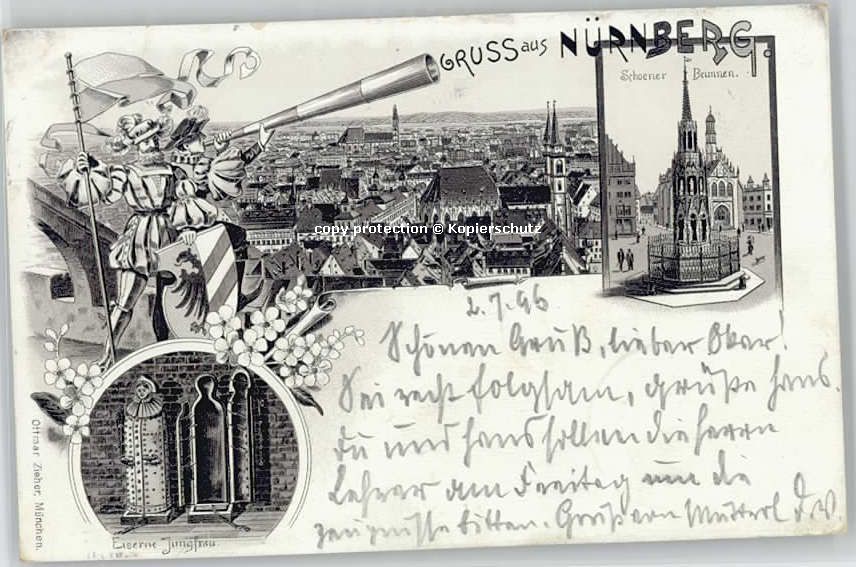 GRUSS aus NÜRNBERG.
Schoener Brunnen.
copy protection © Kopierschutz
2.7.96
Schönen Gruß, lieber Oskar!
Sei recht folgsam, grüße Hans.
Du und Hans sollen die Herrn
Lehrer am Freitag um die
Zeugnisse bitten. Gruß an Mutterl
Eiserne Jungfrau.
Ottmar Zieher, München.